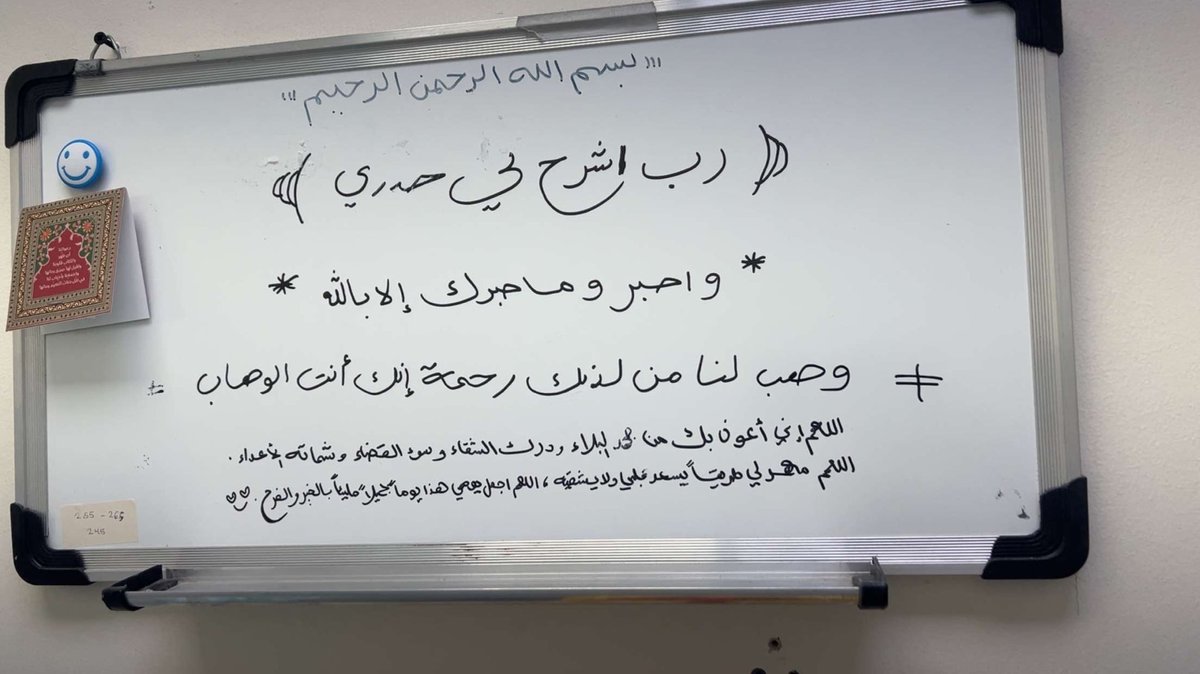 "بسم الله الرحمن الرحيم"
﴿ رب اشرح لي صدري ﴾
* واصبر وما صبرك إلا بالله *
وهب لنا من لدنك رحمة إنك أنت الوهاب
اللهم إني أعوذ بك من جهد البلاء ودرك الشقاء وسوء القضاء وشماتة الأعداء .
اللهم مهد لي طريقاً يسعد قلبي ولا يشقيه ، اللهم اجعل يومي هذا يوماً جميلاً مليئاً بالخير والفرح . ♡♡
255 - 265
245